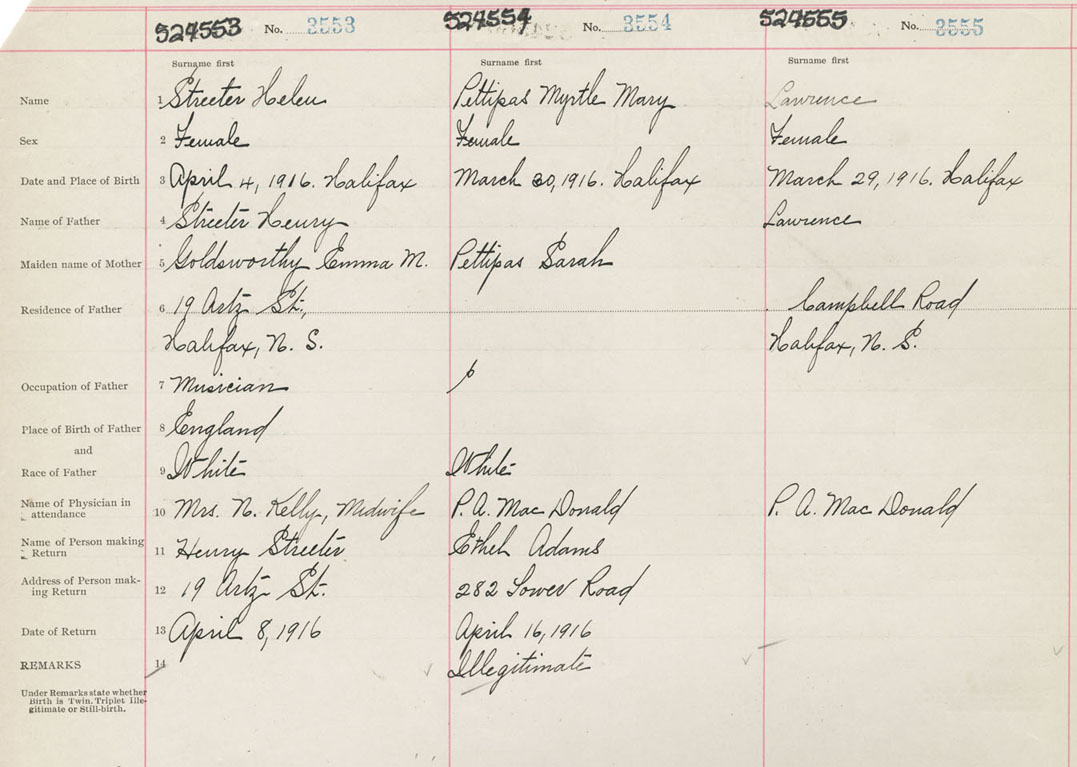 524553 No. 3553 524554 No. 3554 524555 No. 3555
Surname first Surname first Surname first
Name 1 Streeter Helen Pettipas Myrtle Mary Lawrence
Sex 2 Female Female Female
Date and Place of Birth 3 April 4, 1916. Halifax March 30, 1916. Halifax March 29, 1916. Halifax
Name of Father 4 Streeter Henry Lawrence
Maiden name of Mother 5 Goldsworthy Emma M. Pettipas Sarah
Residence of Father 6 19 Artz St., Campbell Road
Halifax, N. S. Halifax, N. S.
Occupation of Father 7 Musician
Place of Birth of Father 8 England
and
Race of Father 9 White White
Name of Physician in
attendance 10 Mrs. N. Kelly, Midwife P. A. Mac Donald P. A. Mac Donald
Name of Person making
Return 11 Henry Streeter Ethel Adams
Address of Person mak-
ing Return 12 19 Artz St. 282 Tower Road
Date of Return 13 April 8, 1916 April 16, 1916
REMARKS 14 Illegitimate
Under Remarks state whether
Birth is Twin, Triplet Ille-
gitimate or Still-birth.